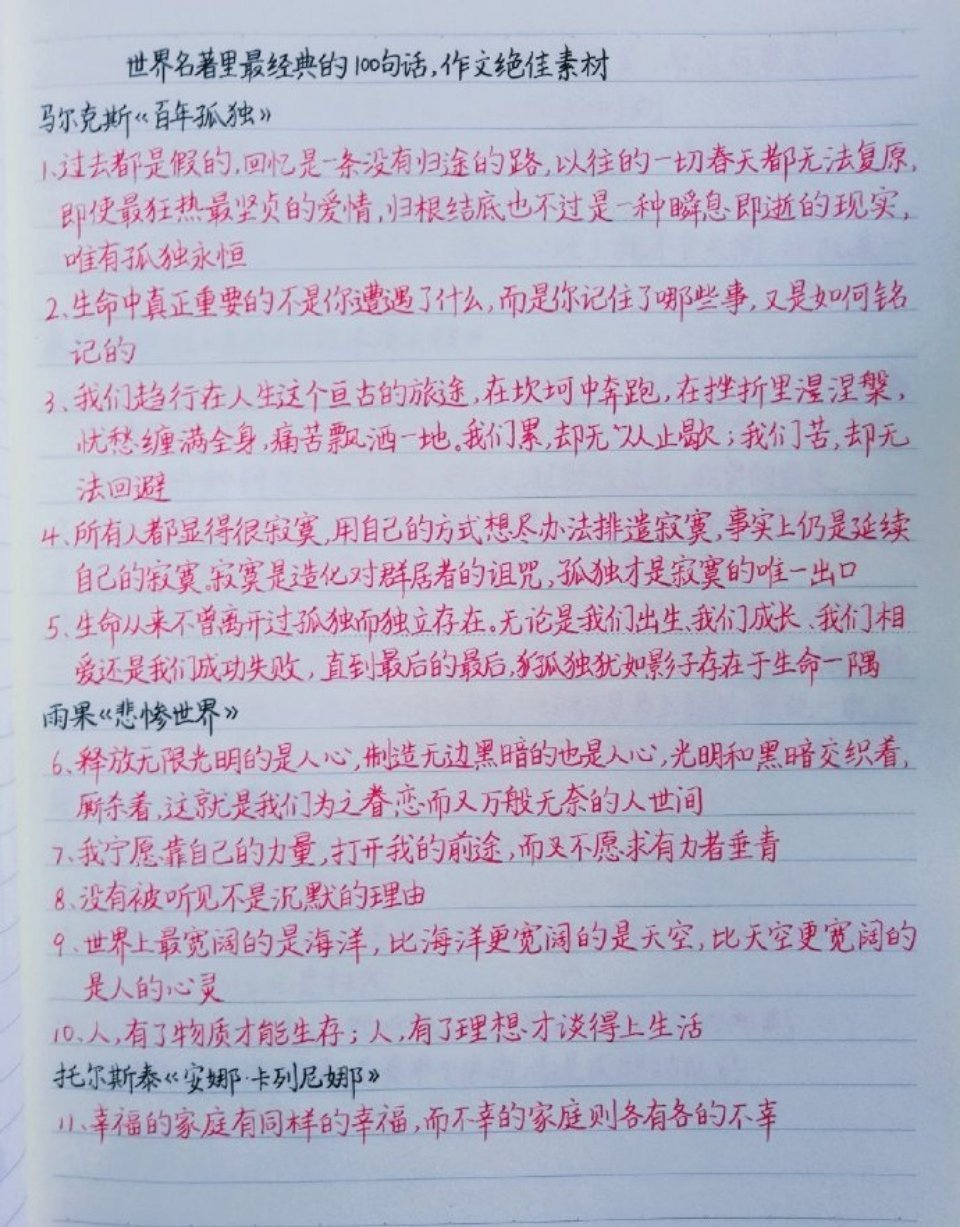 世界名著里最经典的100句话,作文绝佳素材
马尔克斯《百年孤独》
1、过去都是假的,回忆是一条没有归途的路,以往的一切春天都无法复原,
即使最狂热最坚贞的爱情,归根结底也不过是一种瞬息即逝的现实,
唯有孤独永恒
2、生命中真正重要的不是你遭遇了什么,而是你记住了哪些事,又是如何铭
记的
3、我们趋行在人生这个亘古的旅途,在坎坷中奔跑,在挫折里涅槃,
忧愁缠满全身,痛苦飘洒一地。我们累,却无从止歇;我们苦,却无
法回避
4、所有人都显得很寂寞,用自己的方式想尽办法排遣寂寞,事实上仍是延续
自己的寂寞。寂寞是造化对群居者的诅咒,孤独才是寂寞的唯一出口
5、生命从来不曾离开过孤独而独立存在。无论是我们出生、我们成长、我们相
爱还是我们成功失败,直到最后的最后,孤独犹如影子存在于生命一隅
雨果《悲惨世界》
6、释放无限光明的是人心,制造无边黑暗的也是人心,光明和黑暗交织着,
厮杀着,这就是我们为之眷恋而又万般无奈的人世间
7、我宁愿靠自己的力量,打开我的前途,而又不愿求有力者垂青
8、没有被听见不是沉默的理由
9、世界上最宽阔的是海洋,比海洋更宽阔的是天空,比天空更宽阔的
是人的心灵
10、人,有了物质才能生存;人,有了理想才谈得上生活
托尔斯泰《安娜·卡列尼娜》
11、幸福的家庭有同样的幸福,而不幸的家庭则各有各的不幸